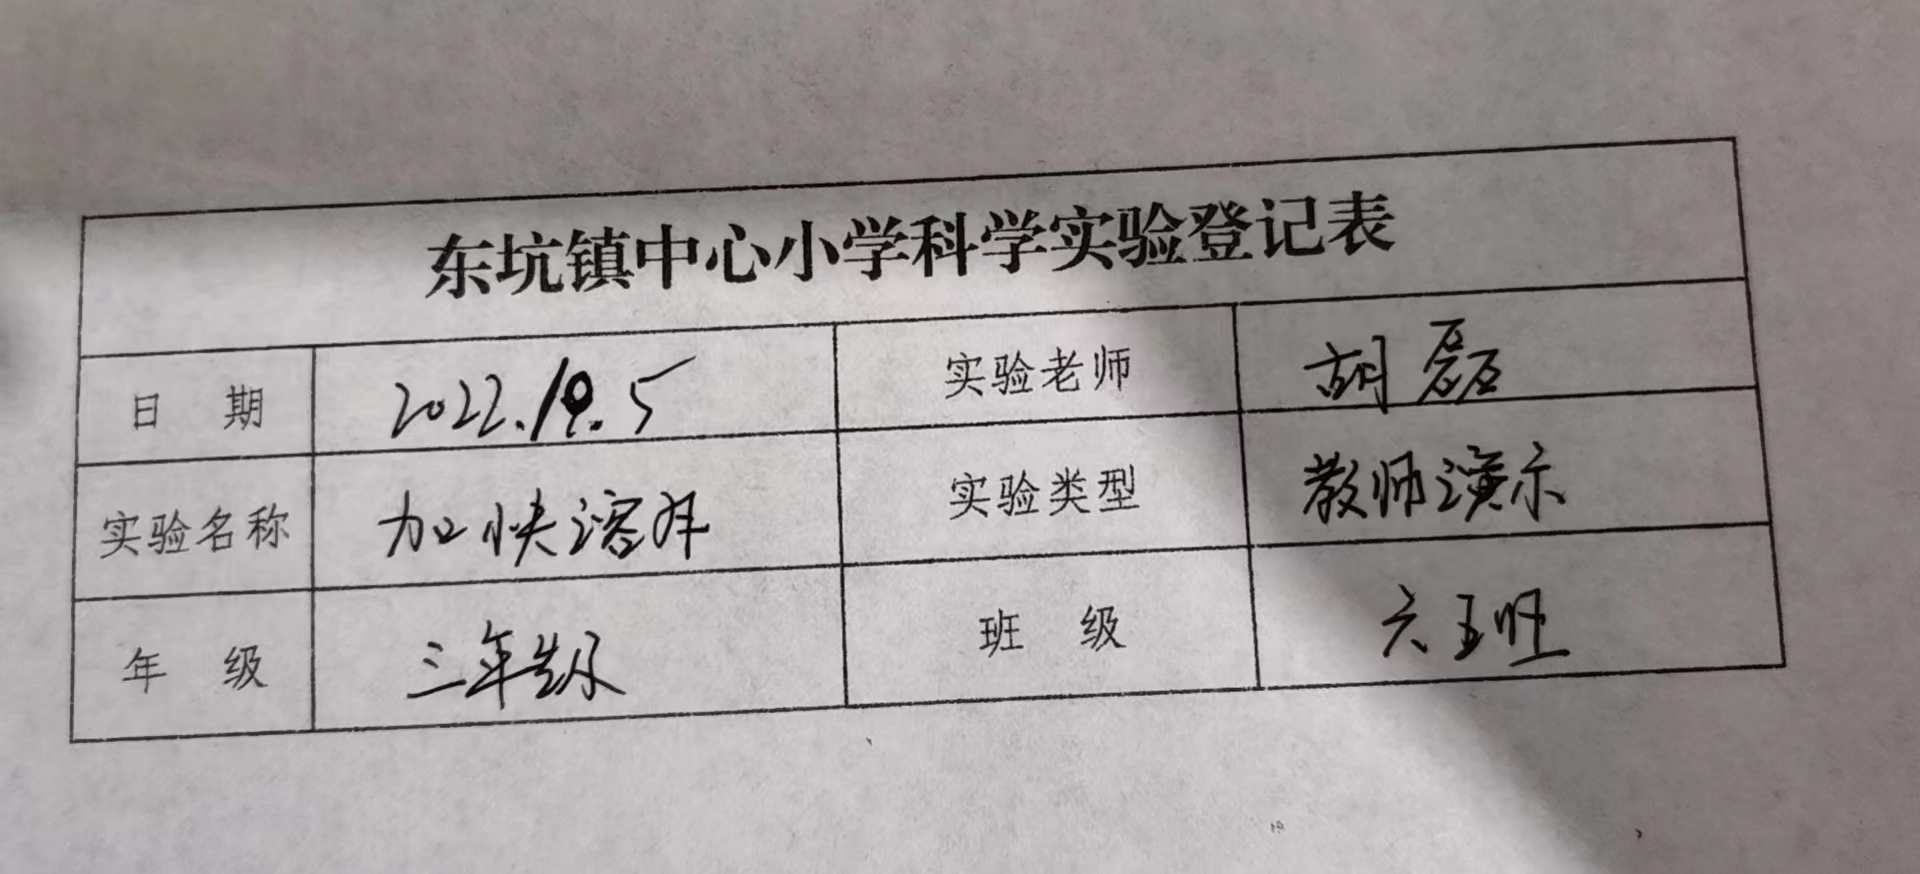 东坑镇中心小学科学实验登记表
日 期 2022.10.5 实验老师 胡磊
实验名称 加快溶解 实验类型 教师演示
年 级 三年级 班 级 六五班